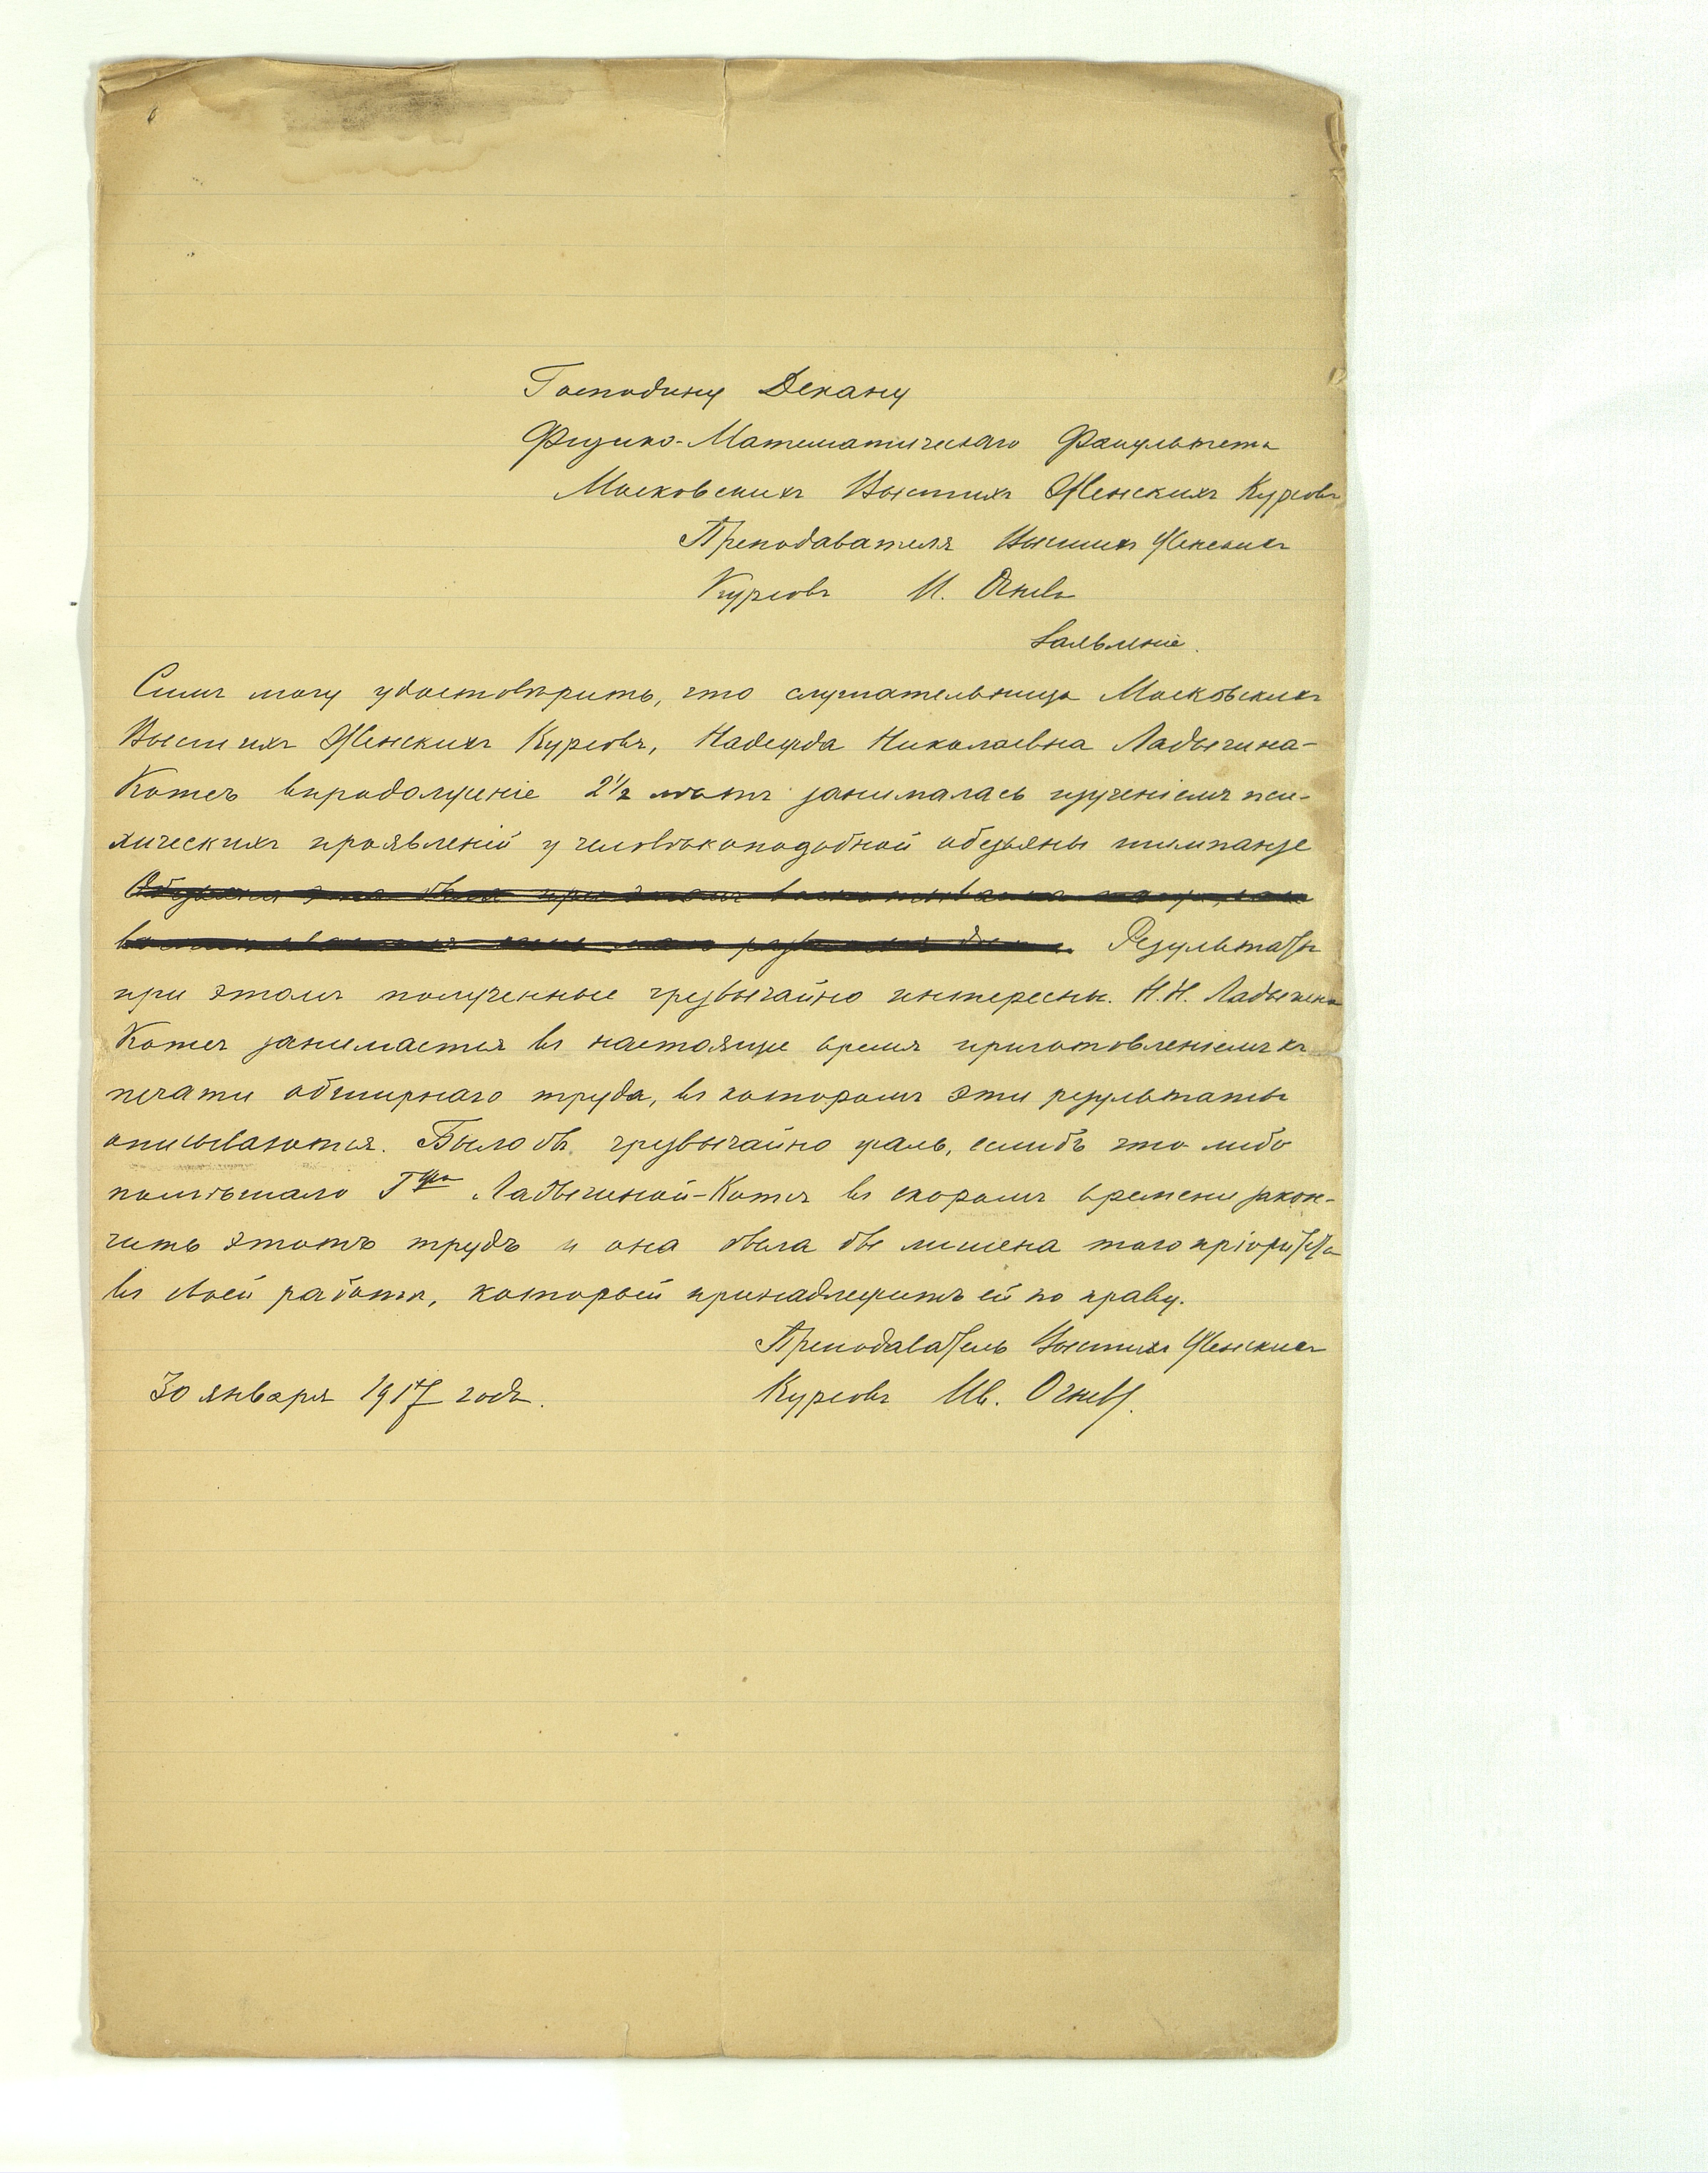 Господину Декану
Физико-Математическаго Факультета
Московскихъ Высшихъ Женскихъ Курсовъ
Преподавателя Высшихъ Женскихъ
Курсовъ И. Огнева
Заявленіе.
Симъ могу удостовѣрить, что слушательница Московскихъ
Высшихъ Женскихъ Курсовъ, Надежда Николаевна Ладыгина-
Котсъ впродолженіе 2½ лѣтъ занималась изученіемъ пси-
хическихъ проявленій у человѣкоподобной обезьяны шимпанзе
Обезьяна эта была при этомъ
Результаты
при этомъ полученные чрезвычайно интересны. Н.Н. Ладыгина
Котсъ занимается въ настоящее время приготовленіемъ къ
печати обширнаго труда, въ которомъ эти результаты
описываются. Было бъ чрезвычайно жаль, еслибъ что либо
помѣшало Гжѣ Ладыгиной-Котсъ въ скоромъ времени закон-
чить этотъ трудъ и она была бы лишена того пріоритета
въ своей работѣ, который принадлежитъ ей по праву.
Преподаватель Высшихъ Женскихъ
30 января 1917 года. Курсовъ Ив. Огневъ.